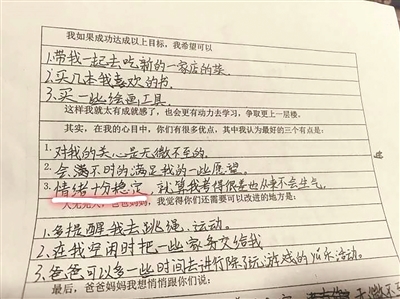 我如果成功达成以上目标，我希望可以
1.带我一起去吃新的一家店的菜.
2.买几本我喜欢的书.
3.买一些绘画工具.
这样我就太有成就感了，也会更有动力去学习，争取更上一层楼。
其实，在我的心目中，你们有很多优点，其中我认为最好的三个有点是：
1.对我的关心是无微不至的.
2.会满不时的满足我的一些愿望.
3.情绪十分稳定 就算我考得很差也从来不会生气.
人无完人，爸爸妈妈，我觉得你们还需要可以改进的地方是：
1.多提醒我去跳绳、运动。
2.在我空闲时把一些家务交给我
3.爸爸可以多一些时间去进行除了玩游戏的娱乐活动。
最后，爸爸妈妈我想悄悄跟你们说：